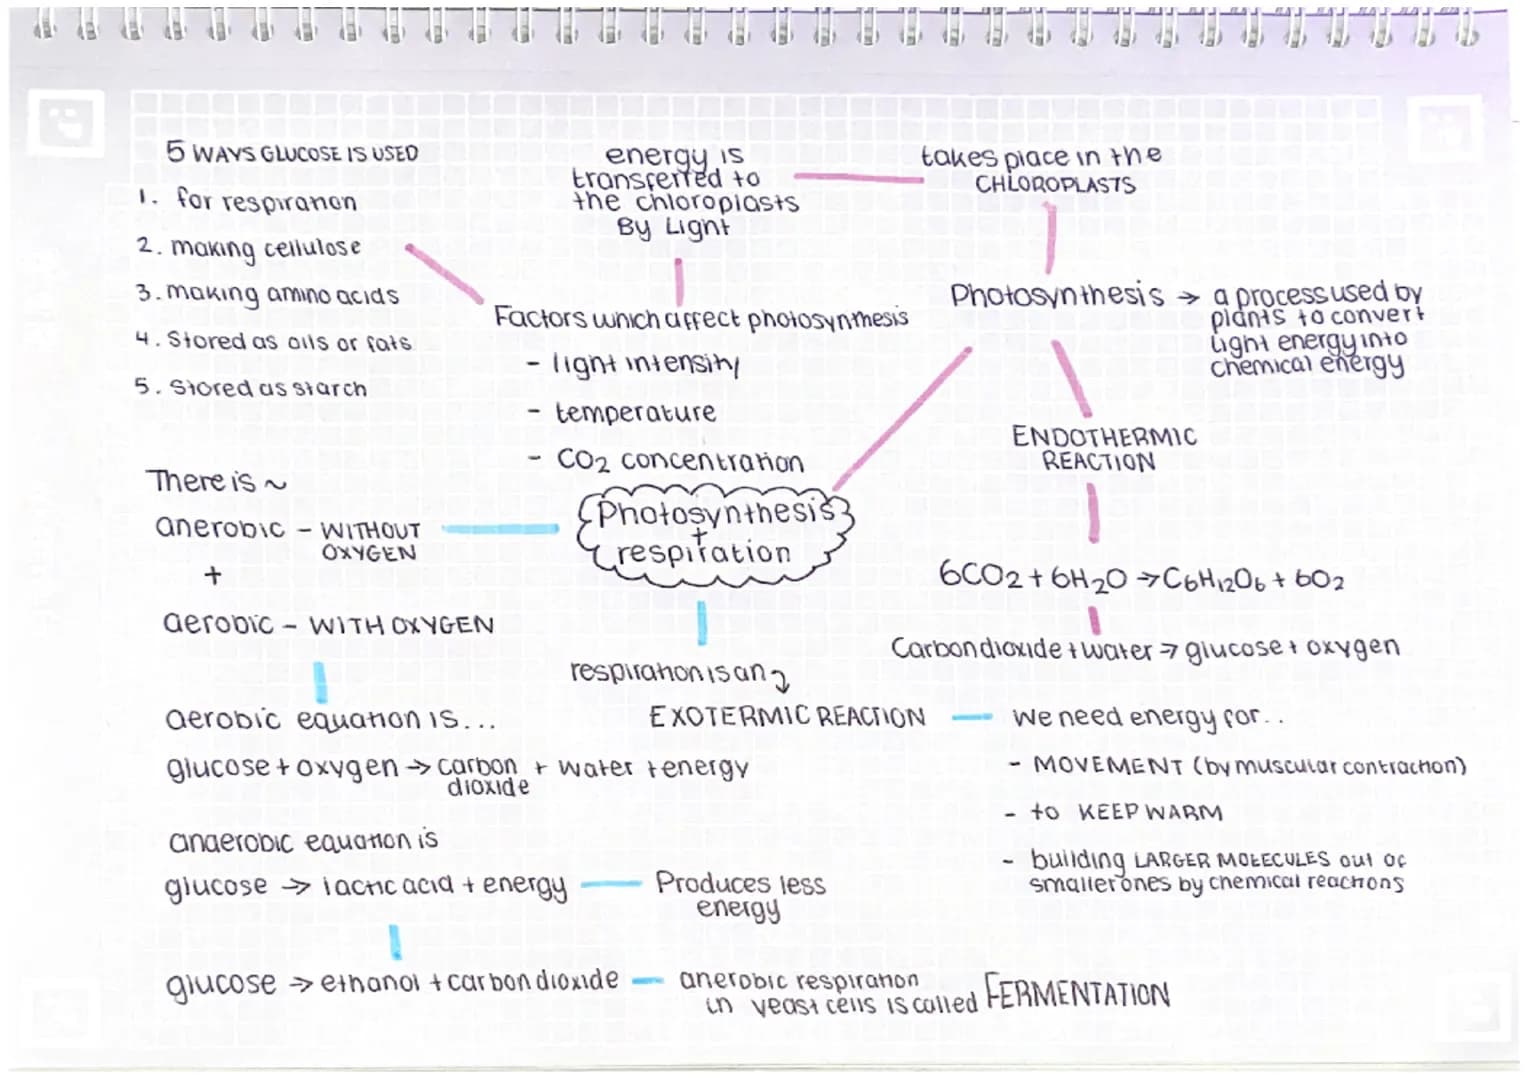 5 WAYS GLUCOSE IS USED
1. for respiration
2. making cellulose
3. making amino acids
4. Stored as oils or fats
5. Stored as starch
energy is
transferred to
the chloroplasts
By Light
takes place in the
CHLOROPLASTS
Factors which affect photosynthesis
- light intensity
- temperature
- CO2 concentration
Photosynthesis → a process used by
plants to convert
light energy into
chemical energy
ENDOTHERMIC
REACTION
6CO2 + 6H2O → C6H12O6 + 6O2
Carbon dioxide + water → glucose + oxygen
Photosynthesis
+
respiration
There is ~
anerobic - WITHOUT
OXYGEN
+
aerobic - WITH OXYGEN
aerobic equation is...
glucose + oxygen → carbon + water + energy
dioxide
anaerobic equation is
glucose → lactic acid + energy
Produces less
energy
glucose → ethanol + carbon dioxide
anerobic respiration
in yeast cells is called FERMENTATION
respiration is an
EXOTERMIC REACTION
we need energy for..
- MOVEMENT (by muscular contraction)
- to KEEP WARM
- building LARGER MOLECULES out of
smaller ones by chemical reactions